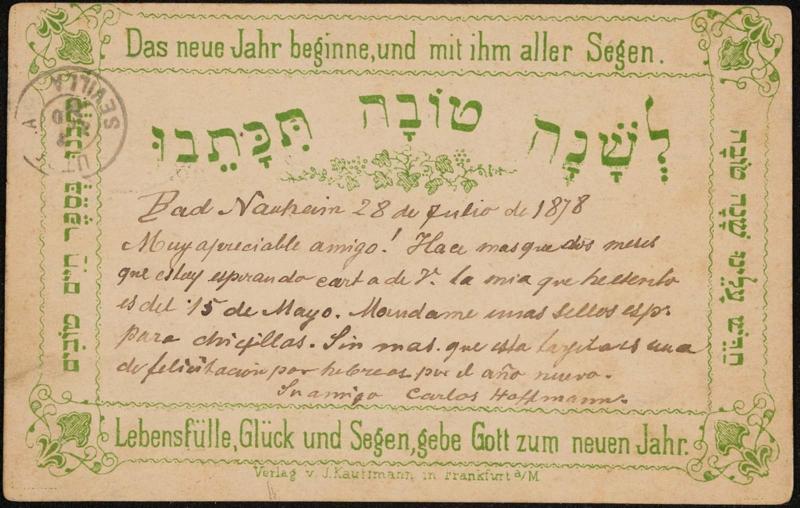 Das neue Jahr beginne, und mit ihm aller Segen.
לְשָׁנָה טוֹבָה תִּכָּתֵבוּ
SEVILLA
חַדֵּשׁ עָלֵינוּ שָׁנָה טוֹבָה
בְּסֵפֶר חַיִּים טוֹבִים
Bad Nauheim 28 de Julio de 1878
Muy apreciable amigo! Hace mas que dos meses
que estoy esperando carta de V. la mia que he
es del 15 de Mayo. Mandame unas sellos esp.
para chicillas. Sin mas. que esta tarjeta es una
de felicitacion por hebreos por el año nuevo.
Su amigo Carlos Hoffmann.
Lebensfülle, Glück und Segen, gebe Gott zum neuen Jahr.
Verlag v. J. Kauffmann in Frankfurt a/M